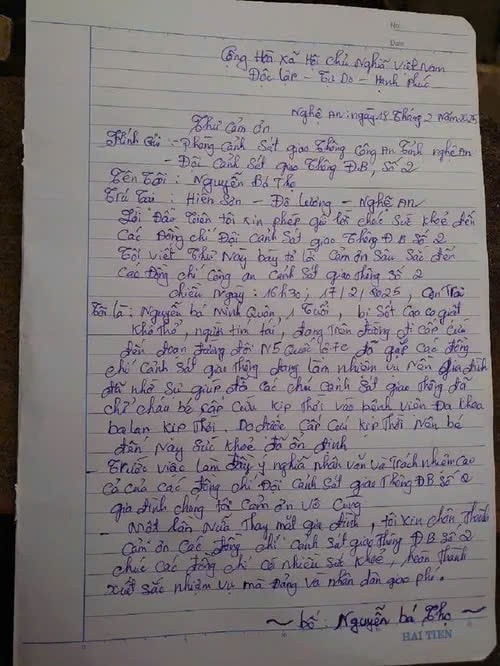 No:
Date:
Cộng Hòa Xã Hội Chủ Nghĩa Việt Nam
Độc lập - Tự Do - Hạnh phúc
Nghệ An: ngày 18 Tháng 2 Năm 2025
Thư Cảm ơn
Kính Gửi: - Phòng Cảnh Sát giao Thông Công An Tỉnh Nghệ An
- Đội Cảnh Sát giao Thông Đ.B, Số 2
Tên Tôi : Nguyễn Bá Thọ
Trú Tại : Hiến Sơn - Đô Lương - Nghệ An
Lời Đầu Tiên tôi xin phép gửi lời chúc Sức Khoẻ đến
Các Đồng chí Đội Cảnh Sát giao Thông Đ B Số 2
Tôi viết Thư Này bày tỏ lời Cảm ơn Sâu Sắc đến
Các Đồng chí Công an Cảnh Sát giao thông Số 2
Chiều Ngày : 16h30, 17/2/2025, Con Trai
Tôi là : Nguyễn bá Minh Quân, 1 Tuổi, bị Sốt Cao co giật
Khó Thở, người tím tái, đang Trên đường đi Cấp Cứu
đến đoạn đường đôi N5 Quốc lộ 7C đã gặp Các đồng
chí Cảnh Sát giao Thông đang làm nhiệm vụ Nên gia đình
đã nhờ Sự giúp đỡ Các chú Cảnh Sát giao Thông đã
chở cháu bé cấp Cứu Kịp Thời vào bệnh viện Đa Khoa
ba lan Kịp Thời. Do được Cấp Cứu Kịp Thời Nên bé
đến Này Sức Khoẻ đã ổn định
- Trước việc làm đầy ý nghĩa nhân văn và Trách nhiệm cao
cả của Các đồng chí Đội Cảnh Sát giao Thông ĐB Số 2
gia đình chúng tôi Cảm ơn Vô Cùng
- Một lần Nữa Thay mặt gia đình, tôi xin chân Thành
Cảm ơn Các đồng chí Cảnh Sát giao Thông Đ B Số 2
chúc Các đồng chí Có nhiều Sức Khoẻ, hoàn Thành
Xuất Sắc nhiệm vụ mà Đảng và nhân dân giao phó.
~ bố: Nguyễn bá Thọ ~
HAI TIEN